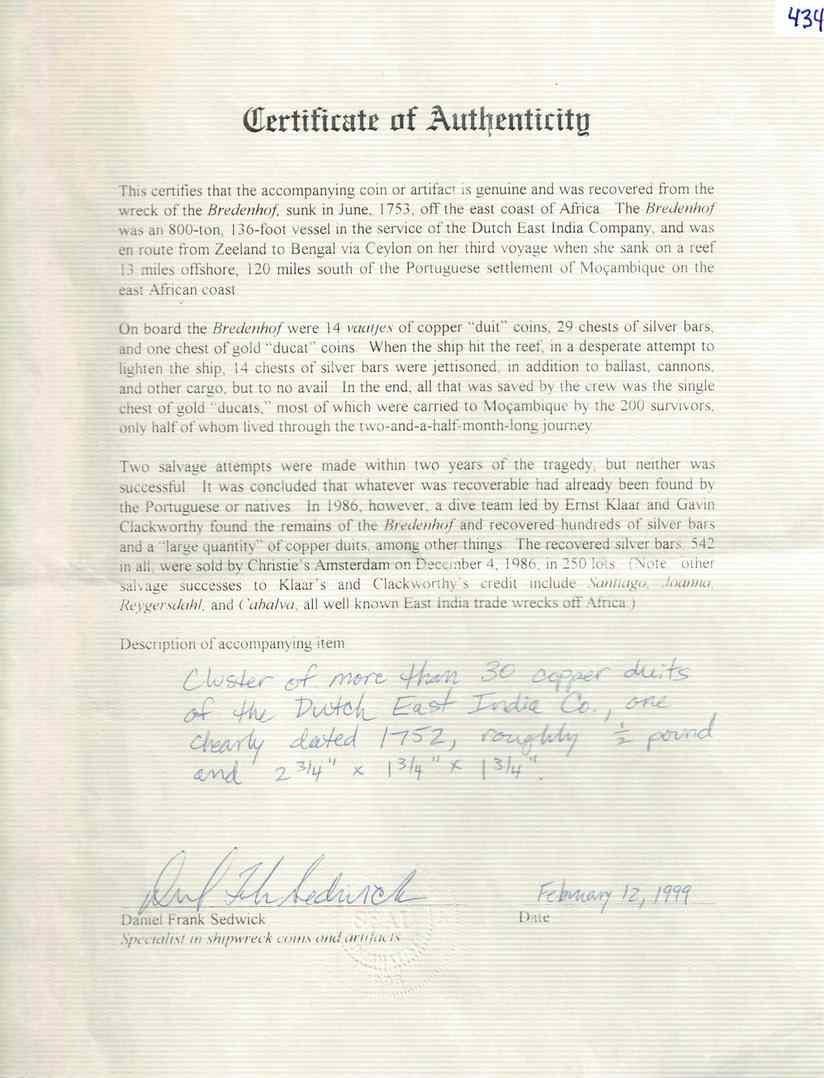 434
Certificate of Authenticity
This certifies that the accompanying coin or artifact is genuine and was recovered from the
wreck of the Bredenhof, sunk in June, 1753, off the east coast of Africa. The Bredenhof
was an 800-ton, 136-foot vessel in the service of the Dutch East India Company, and was
en route from Zeeland to Bengal via Ceylon on her third voyage when she sank on a reef
13 miles offshore, 120 miles south of the Portuguese settlement of Moçambique on the
east African coast.
On board the Bredenhof were 14 vaatjes of copper "duit" coins, 29 chests of silver bars,
and one chest of gold "ducat" coins. When the ship hit the reef, in a desperate attempt to
lighten the ship, 14 chests of silver bars were jettisoned, in addition to ballast, cannons,
and other cargo, but to no avail. In the end, all that was saved by the crew was the single
chest of gold "ducats," most of which were carried to Moçambique by the 200 survivors,
only half of whom lived through the two-and-a-half-month-long journey.
Two salvage attempts were made within two years of the tragedy, but neither was
successful. It was concluded that whatever was recoverable had already been found by
the Portuguese or natives. In 1986, however, a dive team led by Ernst Klaar and Gavin
Clackworthy found the remains of the Bredenhof and recovered hundreds of silver bars
and a "large quantity" of copper duits, among other things. The recovered silver bars, 542
in all, were sold by Christie's Amsterdam on December 4, 1986, in 250 lots. (Note: other
salvage successes to Klaar's and Clackworthy's credit include Santiago, Joanna,
Reygersdahl, and Cabalva, all well known East India trade wrecks off Africa.)
Description of accompanying item:
Cluster of more than 30 copper duits
of the Dutch East India Co., one
clearly dated 1752, roughly ½ pound
and 2 3/4" x 1 3/4" x 1 3/4".
February 12, 1999
Daniel Frank Sedwick
Date
Specialist in shipwreck coins and artifacts